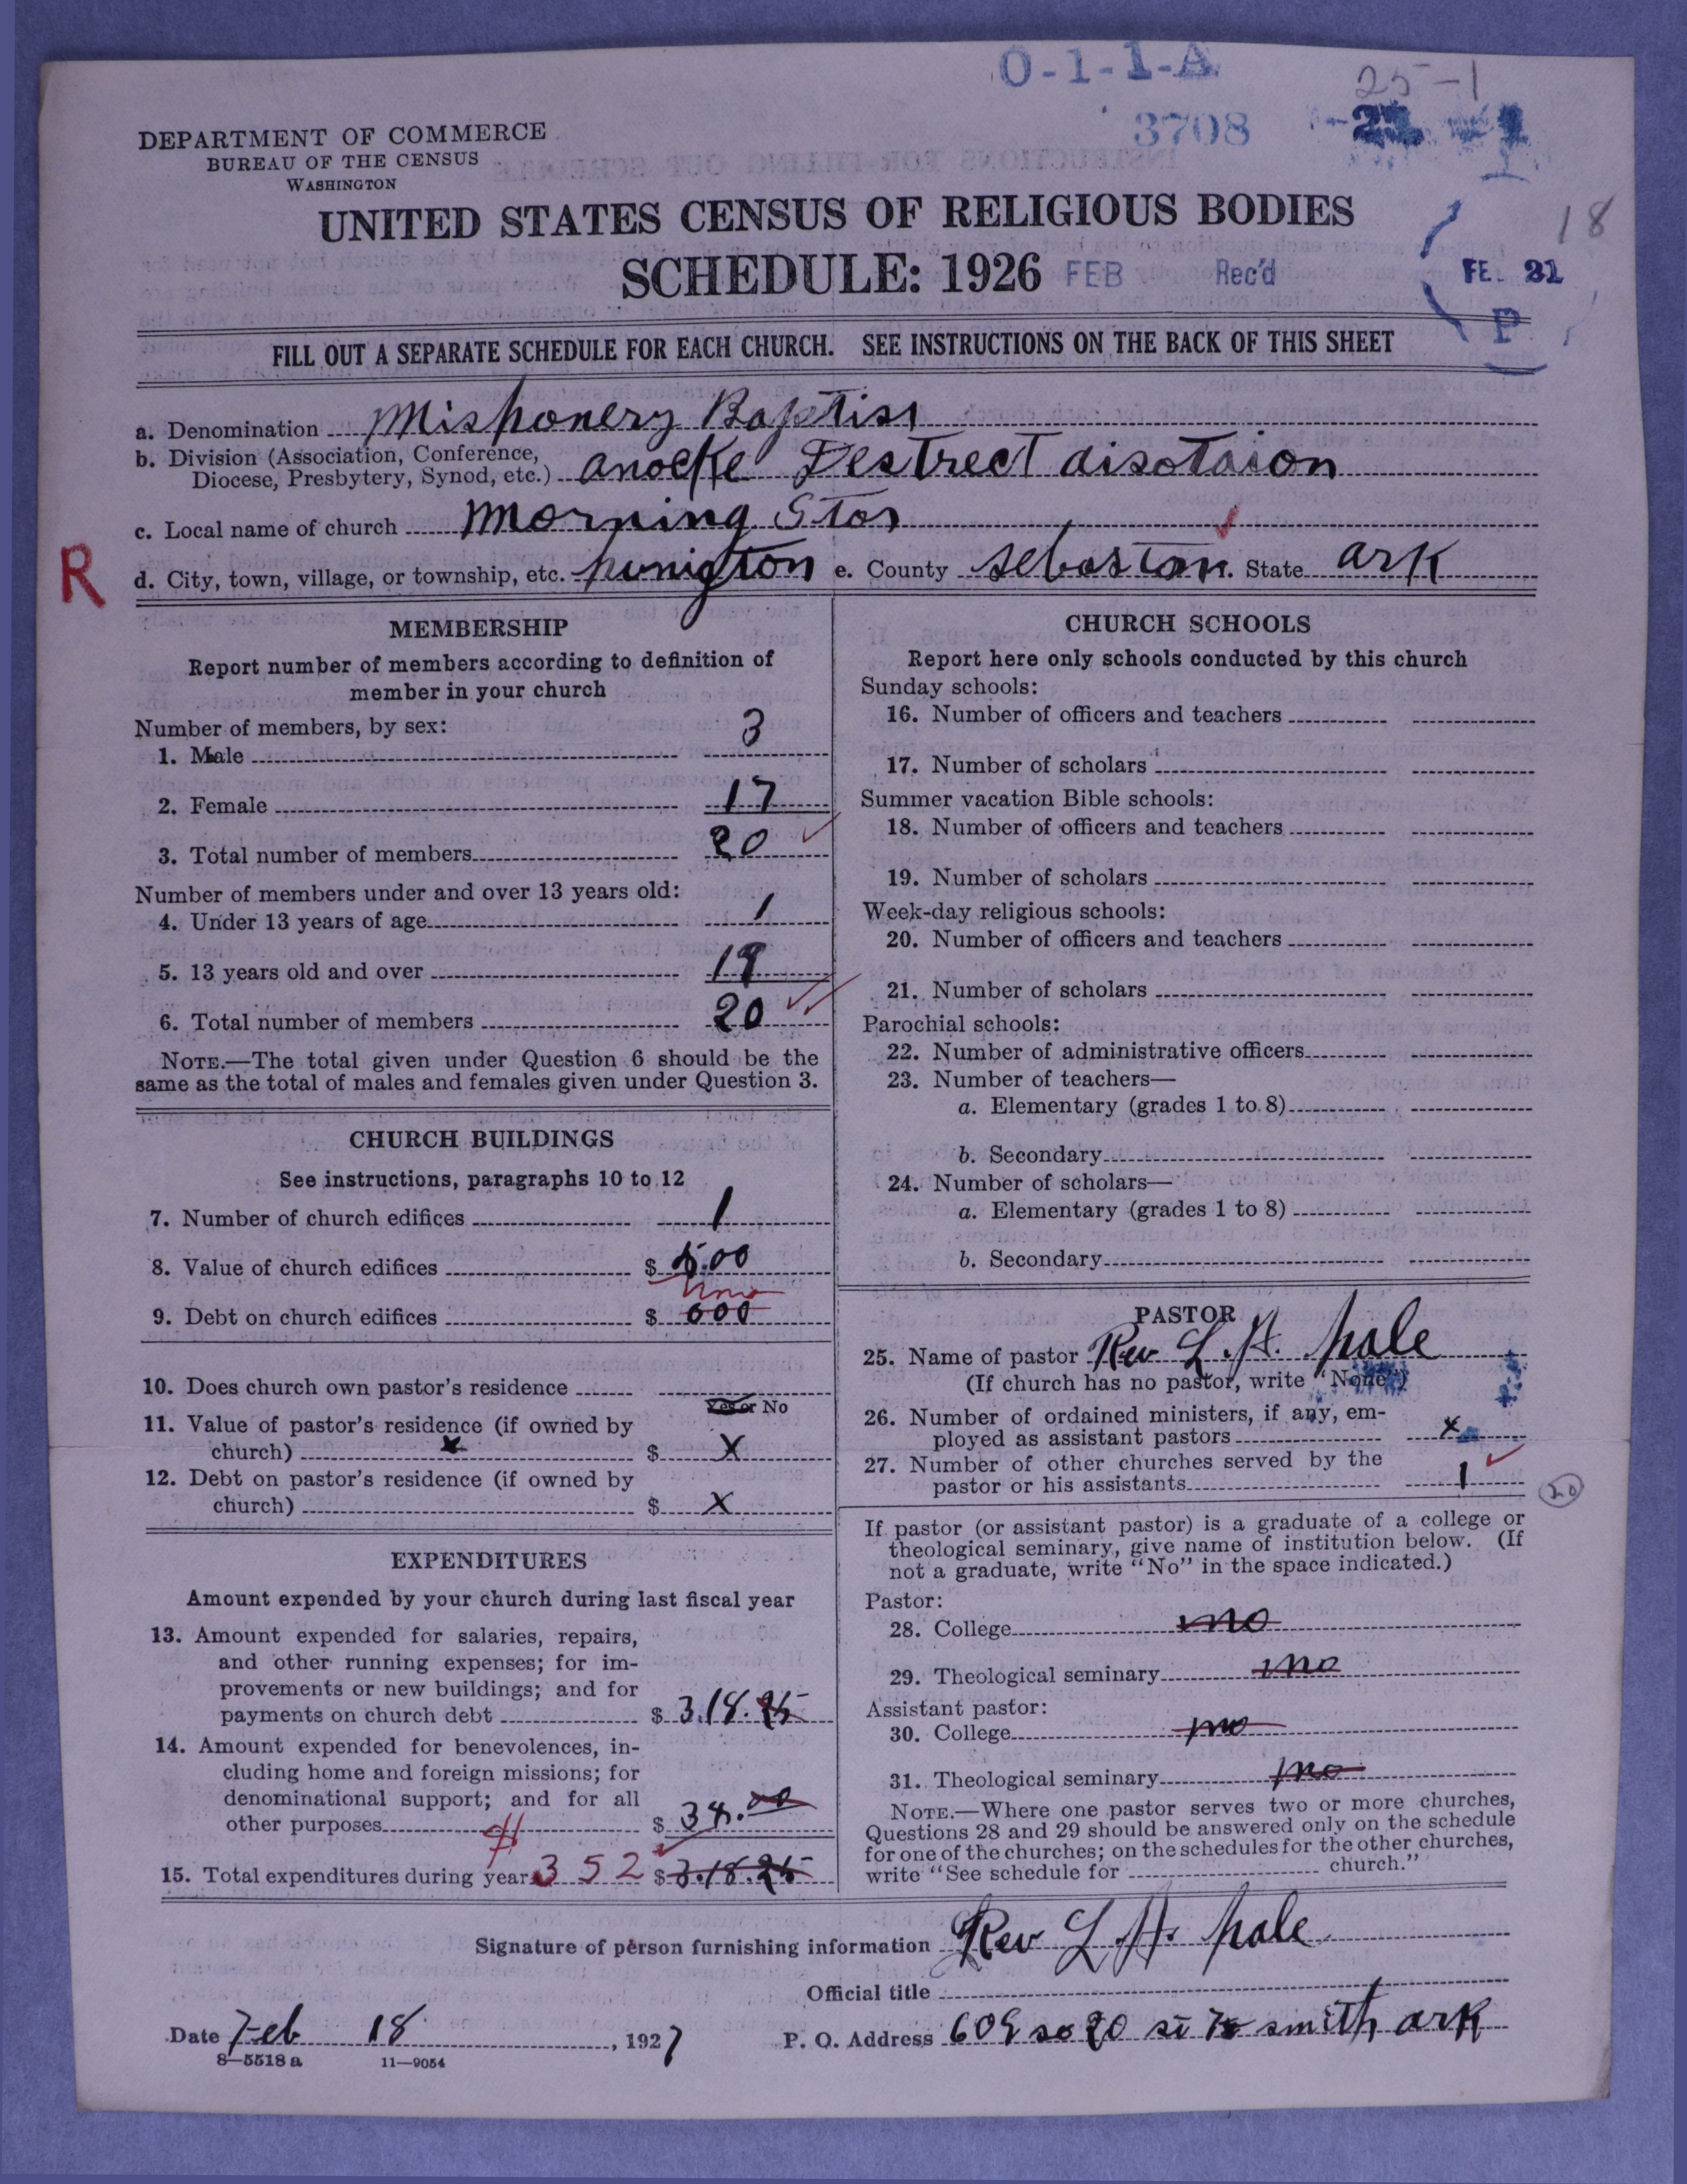 O-1-1-A
25-1
3708
DEPARTMENT OF COMMERCE
BUREAU OF THE CENSUS
WASHINGTON
UNITED STATES CENSUS OF RELIGIOUS BODIES
18
SCHEDULE: 1926 FEB Rec'd
P
FILL OUT A SEPARATE SCHEDULE FOR EACH CHURCH. SEE INSTRUCTIONS ON THE BACK OF THIS SHEET
a. Denomination Mishonery Baptist
b. Division (Association, Conference,
Diocese, Presbytery, Synod, etc.) Destrect
c. Local name of church Morning Star
R
d. City, town, village, or township, etc. hunigton e. County Sebastan State ark
MEMBERSHIP
Report number of members according to definition of
member in your church
Number of members, by sex:
1. Male 3
2. Female 17
3. Total number of members 20
Number of members under and over 13 years old:
4. Under 13 years of age 1
5. 13 years old and over 19
6. Total number of members 20
NOTE.—The total given under Question 6 should be the
same as the total of males and females given under Question 3.
CHURCH BUILDINGS
See instructions, paragraphs 10 to 12
7. Number of church edifices 1
8. Value of church edifices $ 5.00
none
9. Debt on church edifices $ 000
10. Does church own pastor's residence
Yes or No
11. Value of pastor's residence (if owned by
church) x $ X
12. Debt on pastor's residence (if owned by
church) $ X
EXPENDITURES
Amount expended by your church during last fiscal year
13. Amount expended for salaries, repairs,
and other running expenses; for im-
provements or new buildings; and for
payments on church debt $ 3.18.25
14. Amount expended for benevolences, in-
cluding home and foreign missions; for
denominational support; and for all
other purposes $ 34.00
15. Total expenditures during year 352 $ 3.18.25
CHURCH SCHOOLS
Report here only schools conducted by this church
Sunday schools:
16. Number of officers and teachers
17. Number of scholars
Summer vacation Bible schools:
18. Number of officers and teachers
19. Number of scholars
Week-day religious schools:
20. Number of officers and teachers
21. Number of scholars
Parochial schools:
22. Number of administrative officers
23. Number of teachers—
a. Elementary (grades 1 to 8)
b. Secondary
24. Number of scholars—
a. Elementary (grades 1 to 8)
b. Secondary
PASTOR
25. Name of pastor Rev L. H. hale
(If church has no pastor, write "None")
26. Number of ordained ministers, if any, em-
ployed as assistant pastors x
27. Number of other churches served by the
pastor or his assistants 1
20
If pastor (or assistant pastor) is a graduate of a college or
theological seminary, give name of institution below. (If
not a graduate, write "No" in the space indicated.)
Pastor:
28. College no
29. Theological seminary no
Assistant pastor:
30. College no
31. Theological seminary no
NOTE.—Where one pastor serves two or more churches,
Questions 28 and 29 should be answered only on the schedule
for one of the churches; on the schedules for the other churches,
write "See schedule for church."
Signature of person furnishing information Rev L H. hale
Official title
Date Feb 18, 1927 P. O. Address 609 so 20 st smith ark
8—5518 a 11—9054